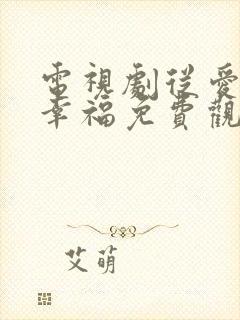 電視劇從愛
幸福免費觀
艾萌